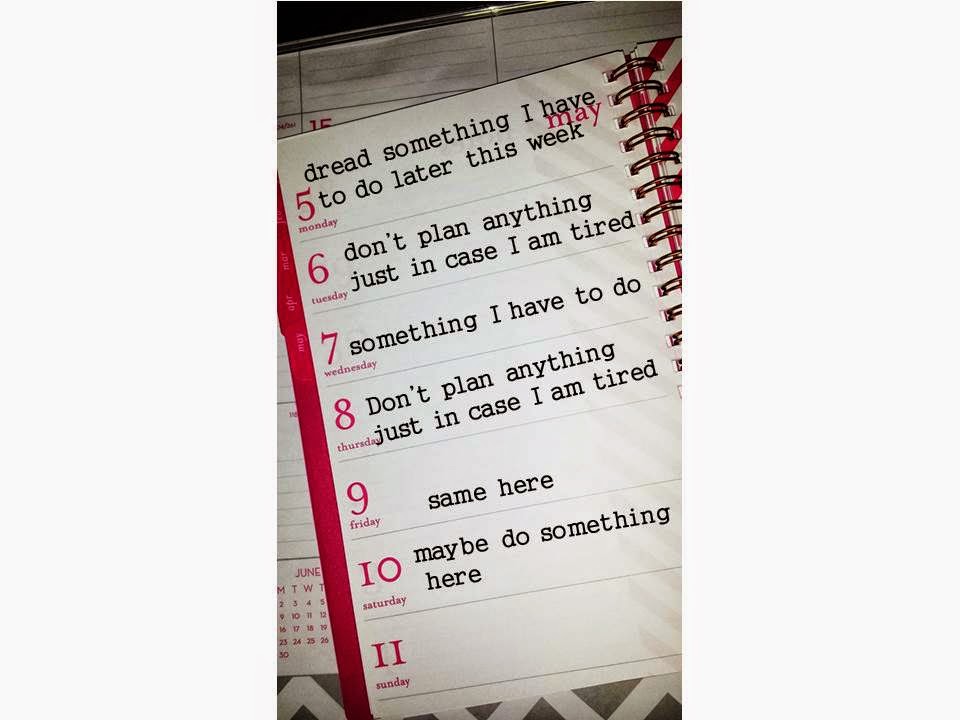 15
may
dread something I have
to do later this week
5
monday
don't plan anything
just in case I am tired
6
tuesday
something I have to do
7
wednesday
Don't plan anything
just in case I am tired
8
thursday
same here
9
friday
maybe do something
here
10
saturday
11
sunday
mar
apr
may
JUNE
M T W T
2 3 4 5
9 10 11 12
16 17 18 19
23 24 25 26
30